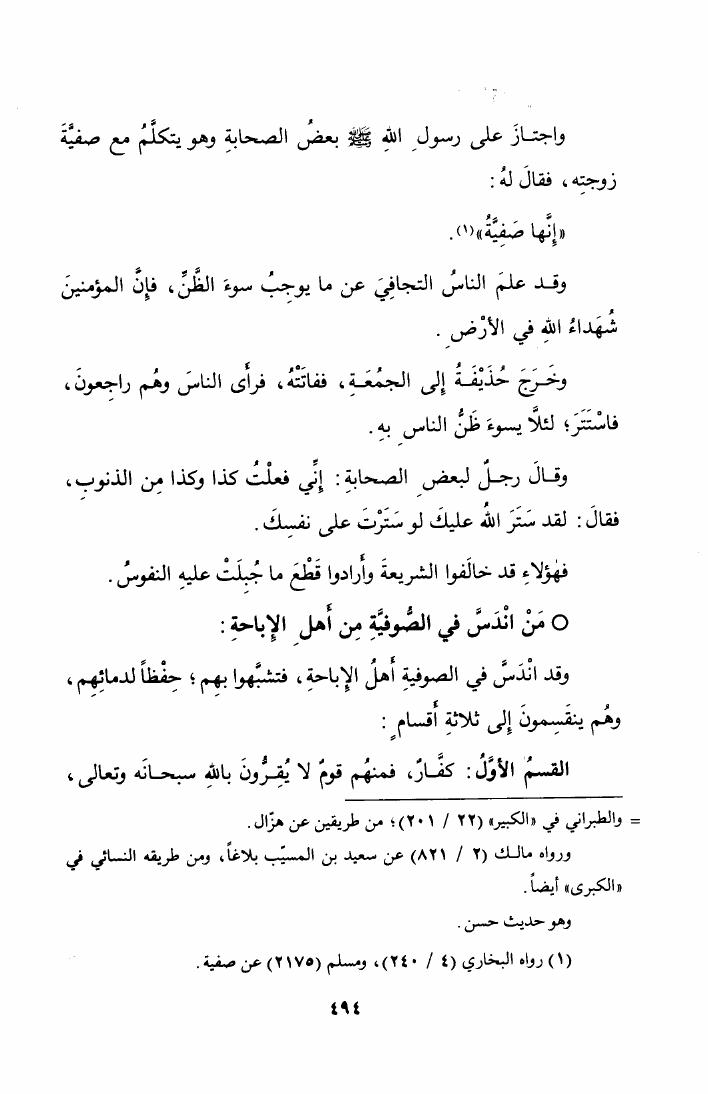 واجتـازَ على رسولِ اللهِ ﷺ بعضُ الصحابةِ وهو يتكلَّمُ مع صفيَّةَ
زوجتِه، فقالَ لهُ:
«إنَّها صَفِيَّةُ»(١).
وقـد علمَ الناسُ التجافِيَ عن ما يوجبُ سوءَ الظَّنِّ، فإنَّ المؤمنينَ
شُهَداءُ اللهِ في الأرْضِ.
وخَـرَجَ حُذَيْفَـةُ إلى الجمُعَـةِ، ففاتَتْهُ، فرأى الناسَ وهُم راجِعونَ،
فاسْتَتَرَ؛ لئلَّا يسوءَ ظَنُّ الناسِ بهِ.
وقـالَ رجـلٌ لبعضِ الصحابةِ: إنِّي فعلْتُ كذا وكذا مِن الذنوبِ،
فقالَ: لقد سَتَرَ اللهُ عليكَ لو سَتَرْتَ على نفسِكَ.
فهٰؤلاءِ قد خالَفوا الشريعةَ وأَرادوا قَطْعَ ما جُبِلَتْ عليهِ النفوسُ.
○ مَنْ انْدَسَّ في الصُّوفيَّةِ مِن أَهلِ الإِباحةِ:
وقد انْدَسَّ في الصوفيةِ أَهلُ الإِباحةِ، فتشبَّهوا بهِم؛ حِفْظاً لدمائِهم،
وهُم ينقَسِمونَ إلى ثلاثةِ أَقسامٍ:
القسمُ الأوَّلُ: كفَّـارٌ، فمنهُم قومٌ لا يُقِـرُّونَ باللهِ سبحـانَه وتعالى،
= والطبراني في «الكبير» (٢٢ / ٢٠١)؛ من طريقين عن هزّال.
ورواه مالـك (٢ / ٨٢١) عن سعيد بن المسيّب بلاغاً، ومن طريقه النسائي في
«الكبرى» أيضاً.
وهو حديث حسن.
(١) رواه البخاري (٤ / ٢٤٠)، ومسلم (٢١٧٥) عن صفية.
٤٩٤